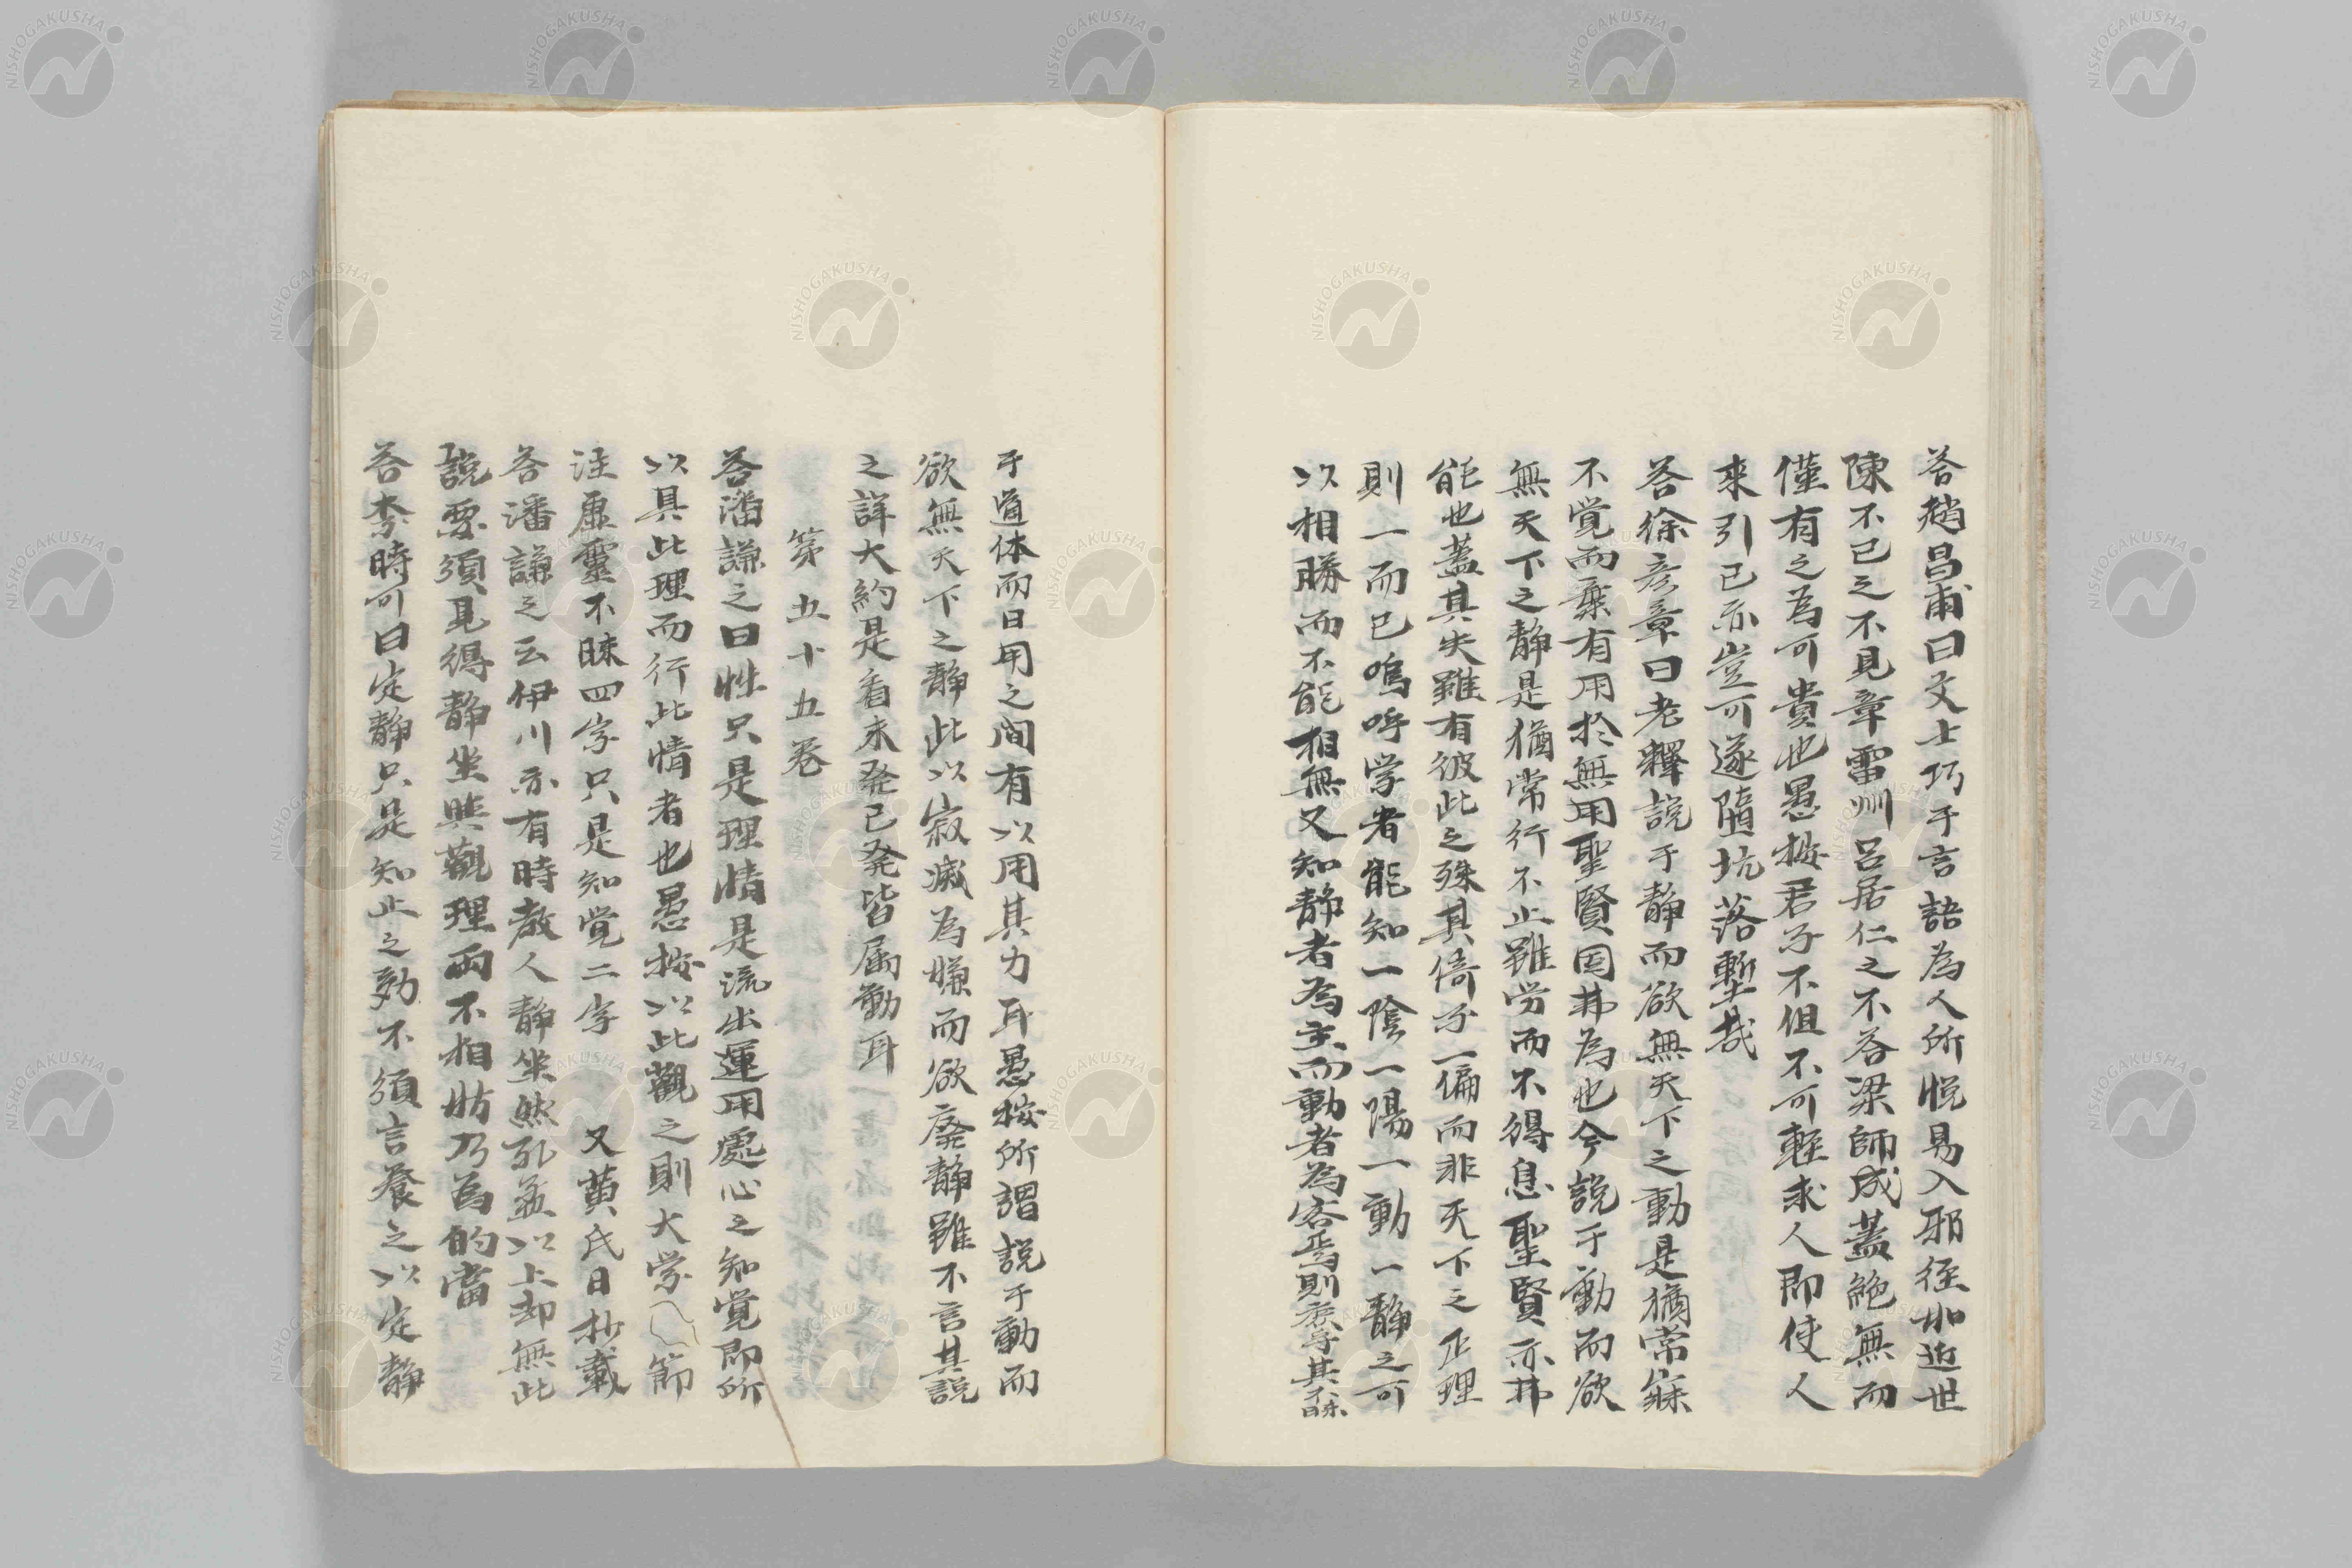 答趙昌甫曰文士巧于言語為人所悦易入邪径如近世
陳不已之不見章雷州呂居仁之不答梁師成蓋絶無而
僅有之為可貴也愚按君子不但不可軽求人即使人
来引已亦豈可遂墮坑落塹哉
答徐彦章曰老釋説于静而欲無天下之動是猶常寐
不覚而棄有用於無用聖賢固弗為也今説于動而欲
無天下之静是猶常行不止雖労而不得息聖賢亦弗
能也蓋其失雖有彼此之殊其倚于一偏而非天下之正理
則一而已嗚呼学者能知一陰一陽一動一静之可
以相勝而不能相無又知静者為主而動者為客焉則庶乎其不昧
于道体而日用之間有以用其力耳愚按所謂説于動而
欲無天下之静此以寂滅為嫌而欲廃静雖不言其説
之詳大約是看未発已発皆属動耳
第五十五巻
答潘謙之曰性只是理情是流出運用處心之知覚即所
以具此理而行此情者也愚按以此觀之則大学節
注虚靈不昧四字只是知覚二字 又黄氏日抄載
答潘謙之云伊川亦有時教人静坐然孔孟以上却無此
説要須見得静坐與觀理両不相妨乃為的當
答李時可曰定静只是知止之効不須言養之以定静